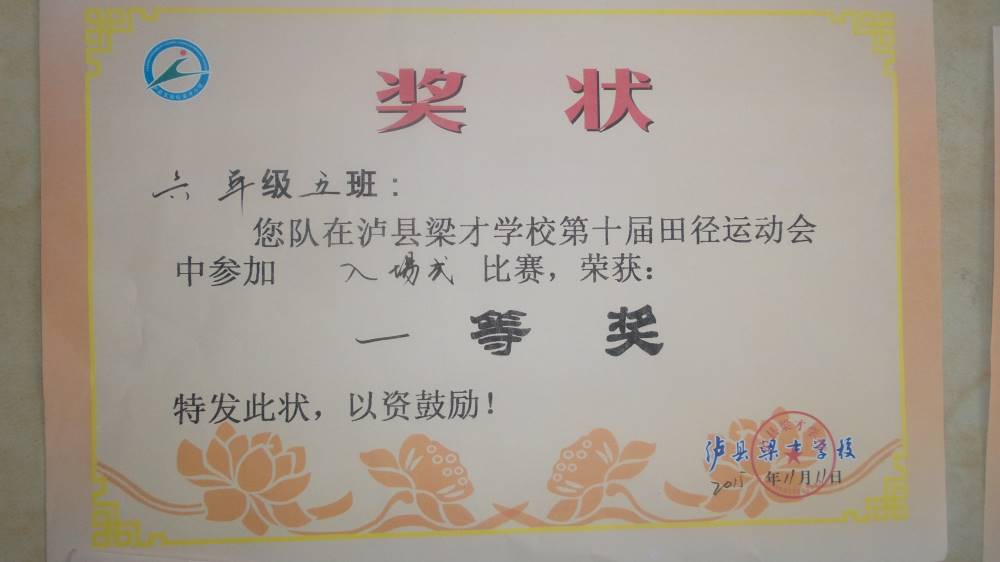 奖状
六年级五班：
您队在泸县梁才学校第十届田径运动会
中参加 入场式 比赛，荣获：
一等奖
特发此状，以资鼓励！
泸县梁才学校
2015年11月11日